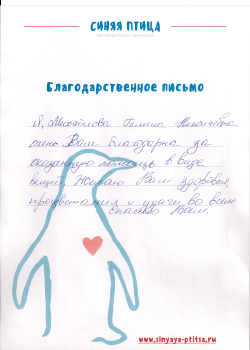 СИНЯЯ ПТИЦА
Благодарственное письмо
Я, Михайлова Галина Николаевна
очень Вам благодарна за
оказанную помощь в виде
вещей. Желаю Вам здоровья,
процветания и удачи во всем
спасибо Вам.
www.sinyaya-ptitsa.ru